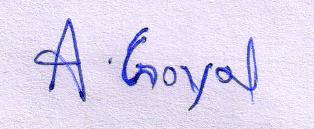 A. Goyal